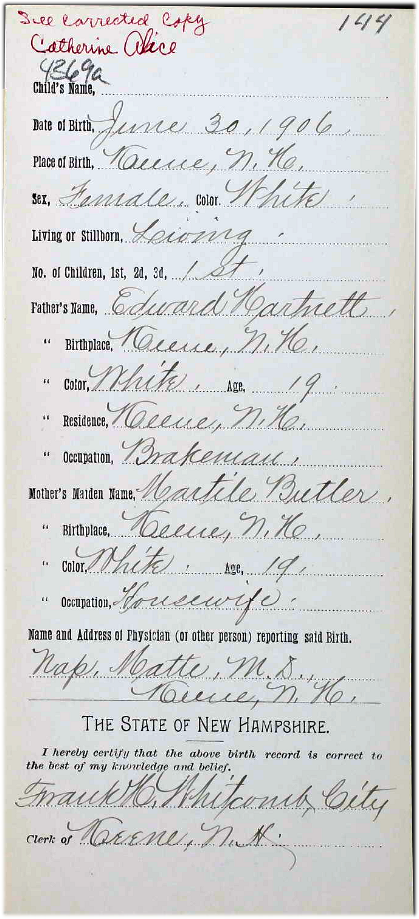 See Corrected Copy
144
Catherine Alice
4369a
Child's Name,
Date of Birth, June 30, 1906.
Place of Birth, Keene, N. H.
Sex, Female. Color, White.
Living or Stillborn, Living.
No. of Children, 1st, 2d, 3d, 1st.
Father's Name, Edward Hartnett.
" Birthplace, Keene, N. H.
" Color, White. Age, 19.
" Residence, Keene, N. H.
" Occupation, Brakeman.
Mother's Maiden Name, Martile Butler.
" Birthplace, Keene, N. H.
" Color, White. Age, 19.
" Occupation, Housewife.
Name and Address of Physician (or other person) reporting said Birth.
Nap. Matte, M. D.,
Keene, N. H.
THE STATE OF NEW HAMPSHIRE.
I hereby certify that the above birth record is correct to
the best of my knowledge and belief.
Frank H. Whitcomb, City
Clerk of Keene, N. H.